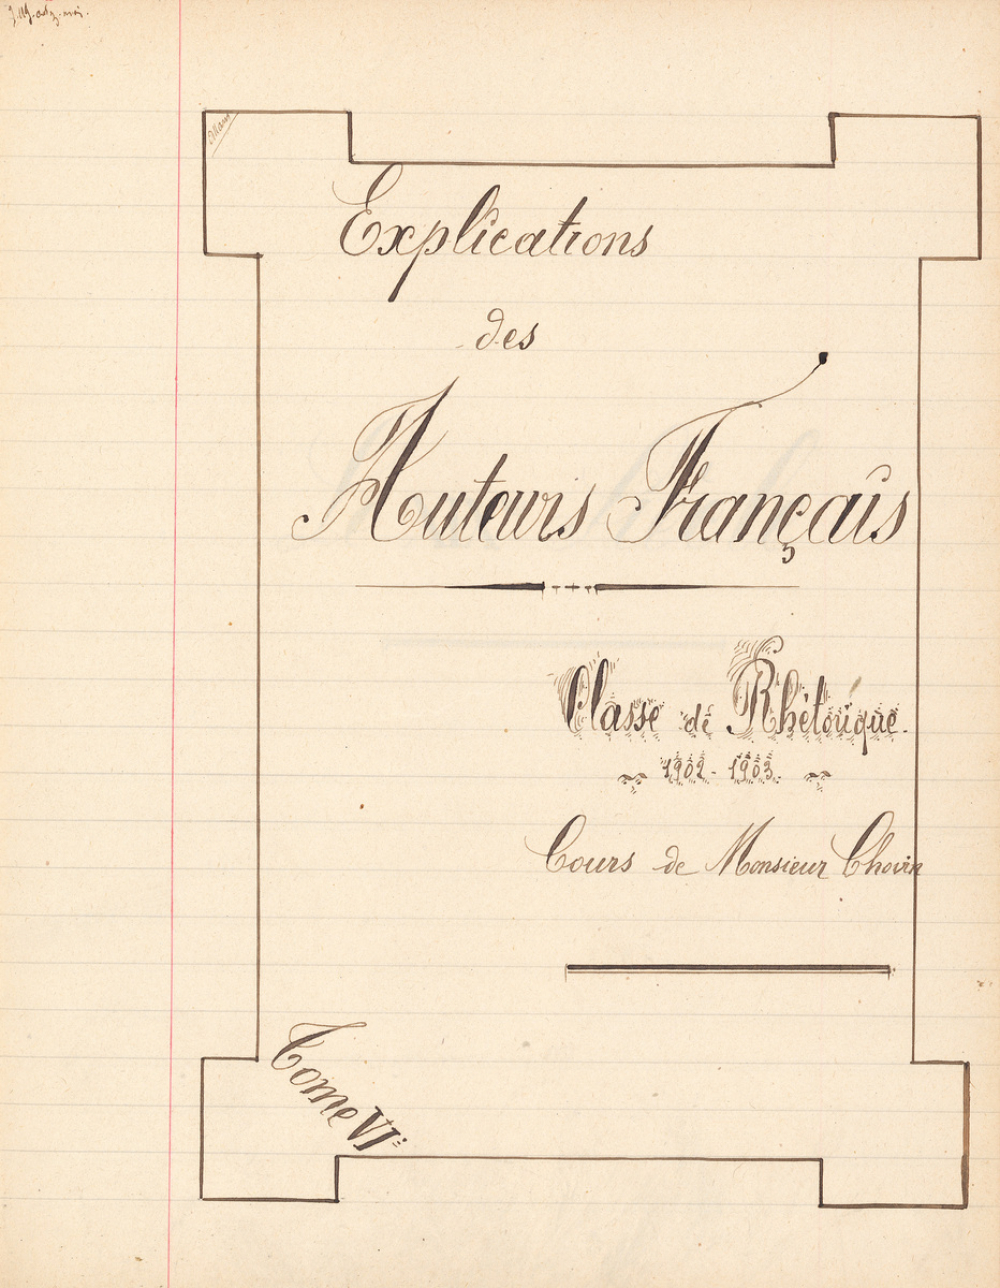 Explications
des
Auteurs Français
Classe de Rhétorique.
1902-1903.
Cours de Monsieur Chovin
Tome VI